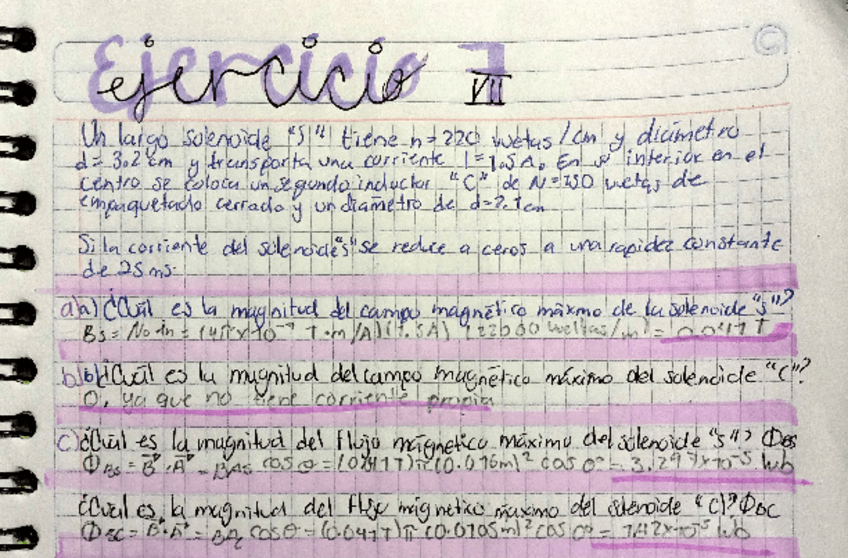 Ejercicio 7
ejercicio VII
Un largo solenoide "S" tiene n=220 vueltas/cm y diámetro
d=3.2 cm y transporta una corriente i=1.5 A. En su interior en el
centro se coloca un segundo inductor "C" de N=130 vueltas de
empaquetado cerrado y un diametro de d=2.1cm
Si la corriente del solenoide "s" se reduce a ceros a una rapidez constante
de 25 ms.
a) a) ¿Cuál es la magnitud del campo magnético máximo de la solenoide "s"?
Bs = No in = (4πx10⁻⁷ T·m/A)(1.5A) (22000 vueltas/m) = 0.0417 T
b) b) ¿Cuál es la magnitud del campo magnético máximo del solenoide "C"?
0, ya que no tiene corriente propia
c) ¿Cuál es la magnitud del flujo magnetico máximo del solenoide "s"? ΦBS
ΦBS = B·A = BAs cos θ = (0.0417) π (0.016m)² cos 0° =
¿Cual es la magnitud del flujo magnetico maximo del solenoide "C"? ΦBC
ΦBC = B·A = BAc cos θ = (0.0417) π (0.0105m)² cos 0° =